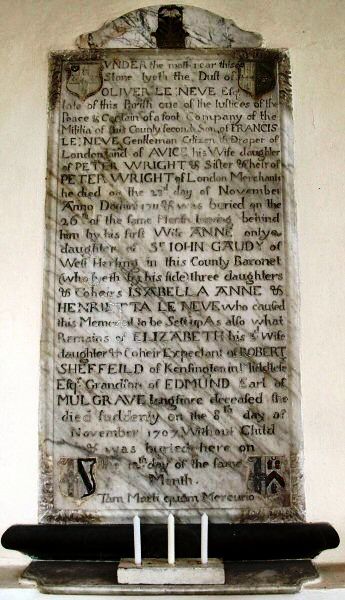 UNDER the mat near this
Stone lyeth the Dust of
OLIVER LE NEVE Esqr
late of this Parish one of the Iustices of the
Peace & Captain of a foot Company of the
Militia of this County second Son of FRANCIS
LE NEVE Gentleman Citizen & Draper of
London and of AVICE his Wife daughter
of PETER WRIGHT & Sister & heir of
PETER WRIGHT of London Merchant
he died on the 23d day of November
Anno Domini 1711 & was buried on the
26th of the same Month leaving behind
him by his first Wife ANNE only
daughter of Sr IOHN GAUDY of
West Herling in this County Baronet
(who lyeth by his side) three daughters
& Coheirs ISABELLA ANNE &
HENRIETTA LE NEVE who caused
this Memorial to be Set up As also what
Remains of ELIZABETH his 3d Wife
daughter & Coheir Expectant of ROBERT
SHEFFEILD of Kensington in Middlesex
Esqr Grandson of EDMUND Earl of
MULGRAVE long since deceased she
died suddenly on the 8th day of
November 1707 Without Child
& was buried here on
the 12th day of the same
Month.
Tam Marti quam Mercurio